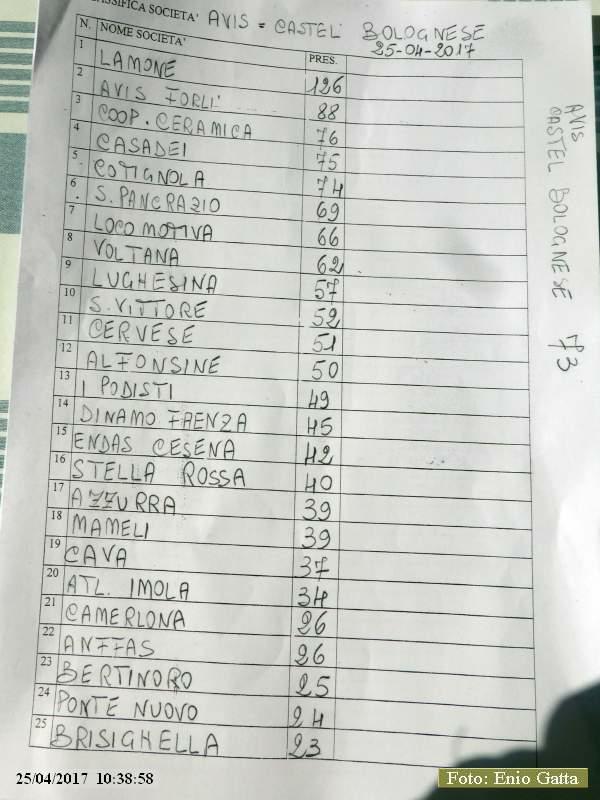 CLASSIFICA SOCIETA' AVIS = CASTEL BOLOGNESE
25-04-2017
N. NOME SOCIETA' PRES.
1 LAMONE 126
2 AVIS FORLI' 88
3 COOP. CERAMICA 76
4 CASADEI 75
5 COTIGNOLA 74
6 S. PANCRAZIO 69
7 LOCOMOTIVA 66
8 VOLTANA 62
9 LUGHESINA 57
10 S. VITTORE 52
11 CERVESE 51
12 ALFONSINE 50
13 I PODISTI 49
14 DINAMO FAENZA 45
15 ENDAS CESENA 42
16 STELLA ROSSA 40
17 AZZURRA 39
18 MAMELI 39
19 CAVA 37
20 ATL. IMOLA 34
21 CAMERLONA 26
22 ANFFAS 26
23 BERTINORO 25
24 PONTE NUOVO 24
25 BRISIGHELLA 23
AVIS
CASTEL BOLOGNESE 73
25/04/2017 10:38:58
Foto: Enio Gatta